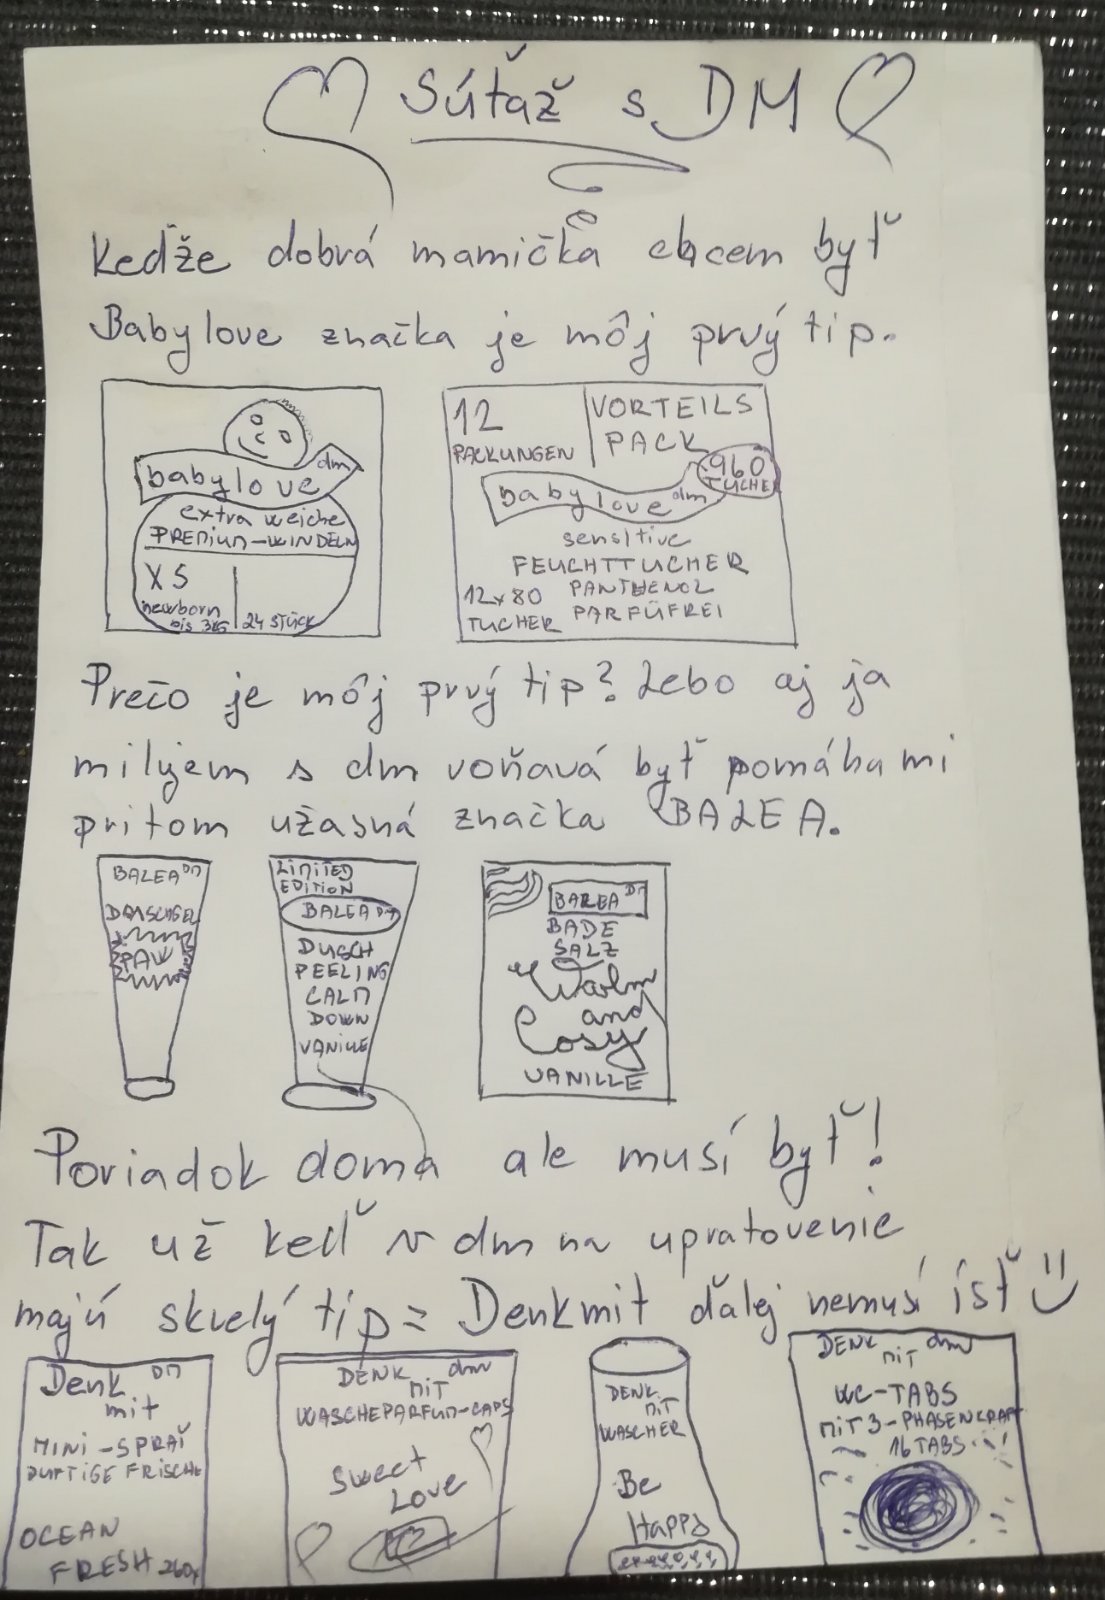 Súťaž s DM
Keďže dobrá mamička chcem byť
Babylove značka je môj prvý tip.
babylove dm
extra weiche
PREMIUM-WINDELN
XS
newborn
bis 3KG
24 STÜCK
12
PACKUNGEN
VORTEILS
PACK
960
TUCHER
babylove dm
sensitive
FEUCHTTUCHER
PANTHENOL
PARFÜFREI
12x80
TUCHER
Prečo je môj prvý tip? Lebo aj ja
milujem s dm voňavá byť pomáha mi
pritom užasná značka BALEA.
BALEA DM
PAW
LIMITED
EDITION
BALEA DM
DUSCH
PEELING
CALM
DOWN
VANILLE
BALEA DM
BADE
SALZ
Warm
and
Cosy
VANILLE
Poriadok doma ale musí byť!
Tak už keď v dm na upratovenie
majú skvelý tip = Denkmit ďalej nemusí ísť
Denk DM
mit
MINI-SPRAŤ
DUFTIGE FRISCHE
OCEAN
FRESH
DENK dm
MIT
WASCHEPARFUM-CAPS
Sweet
Love
DENK
MIT
WASCHER
Be
Happy
DENK dm
MIT
WC-TABS
MIT 3-PHASENKRAFT
16 TABS